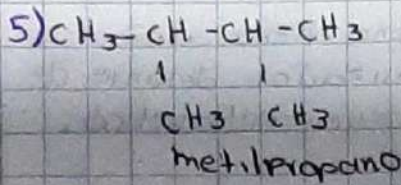 5) CH3 - CH - CH - CH3
CH3 CH3
metilpropano